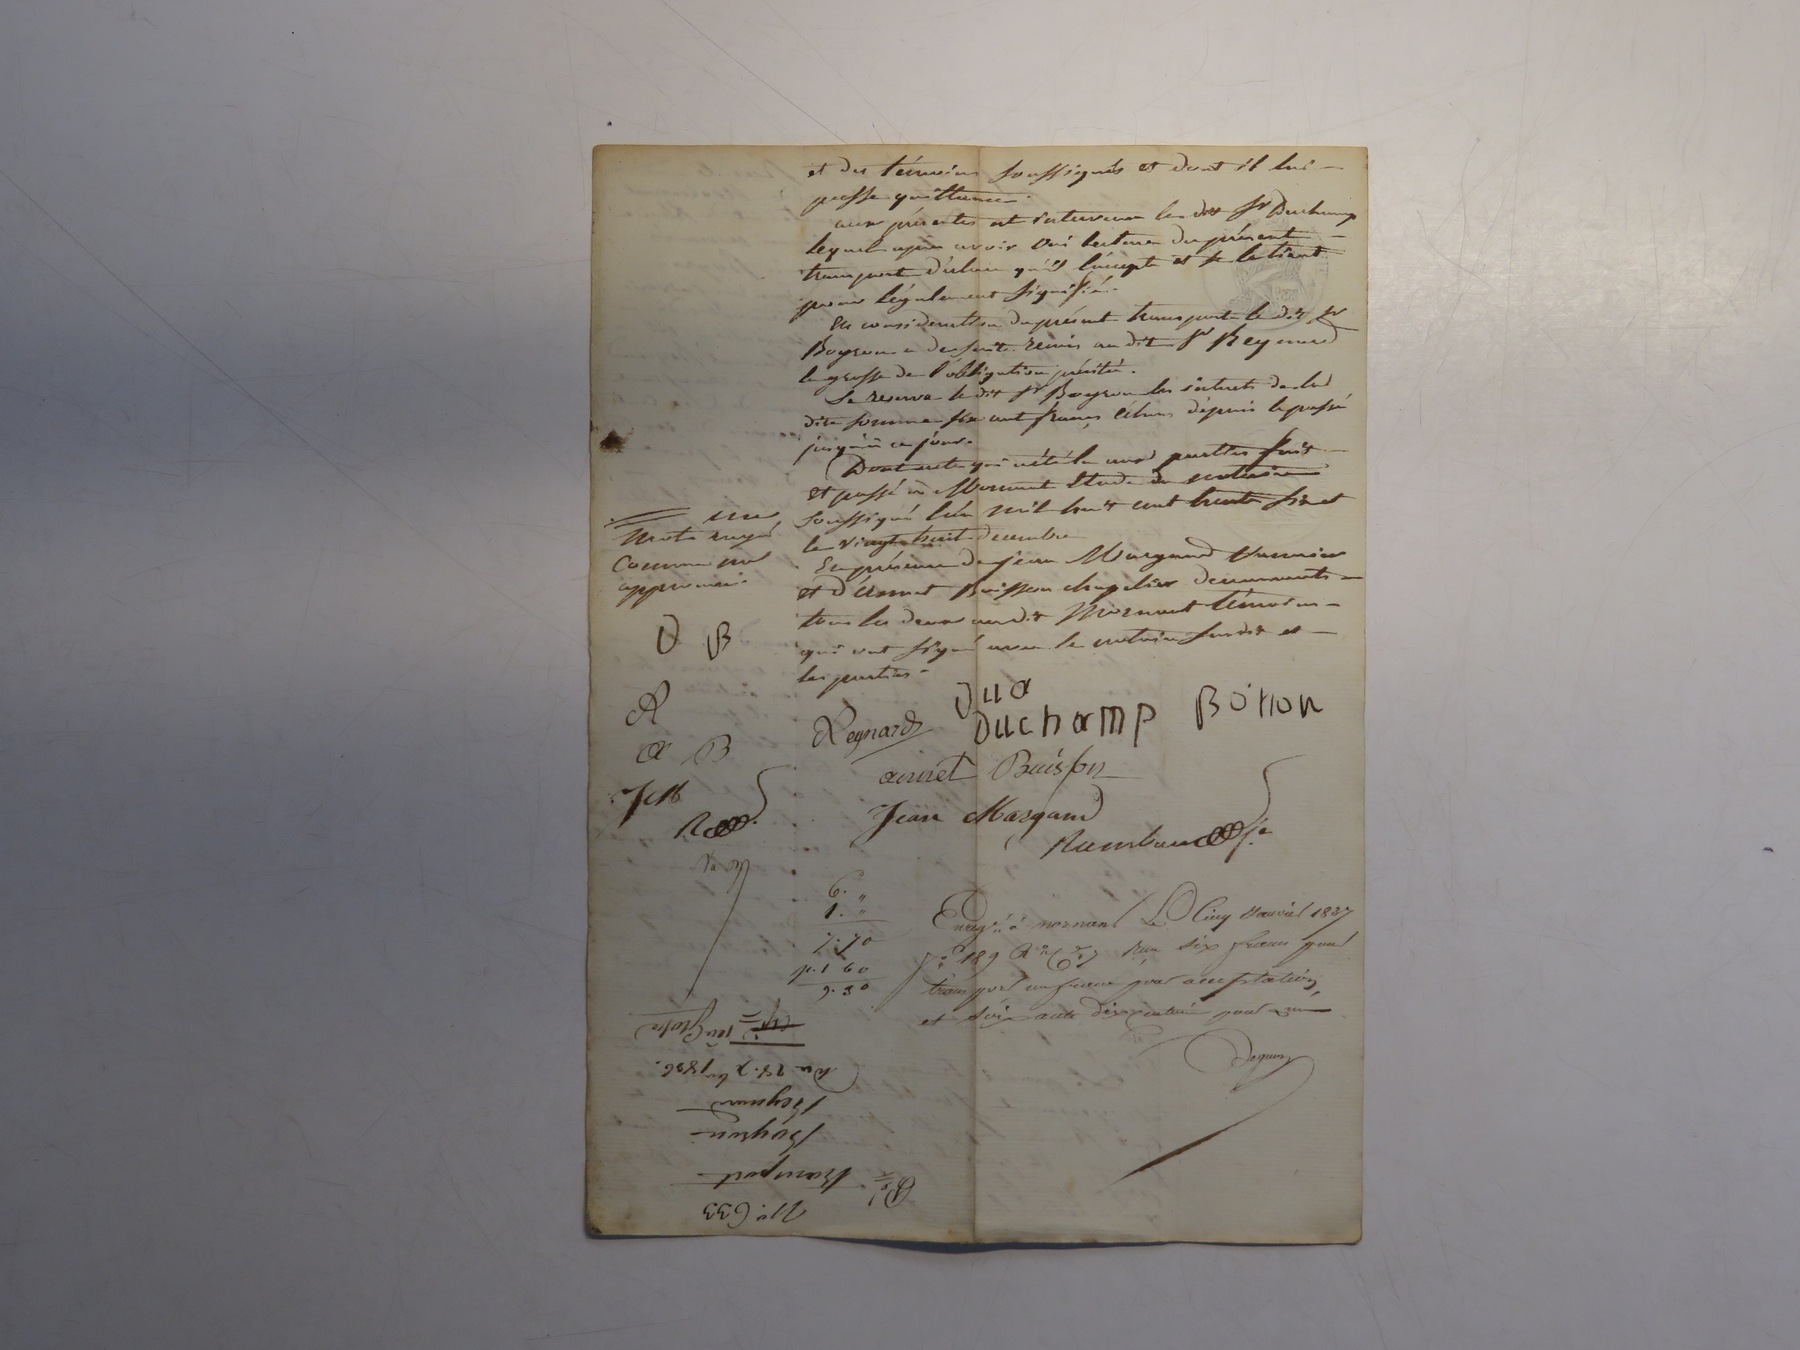 et des témoins soussignés et dont il lui
passe quittance.
aux présentes est intervenu le dit Sr Duchamp
lequel après avoir oui lecture du présent
transport déclare qu'il l'accepte et se le tient
pour légalement signifié.
En considération du présent transport le dit Sr
Boyron a de suite remis au dit Sr Reynard
la grosse de l'obligation précitée.
Se réserve le dit Sr Boyron les intérêts de la
dite somme six cent francs échus depuis le passé
jusqu'à ce jour.
Dont acte qui a été lu aux parties fait
et passé à Mornant étude du notaire
soussigné l'an mil huit cent trente six et
le vingt huit decembre
En présence de jean Margand
et d'Annet Buisson chapelier demeurants
tous les deux au dit Mornant témoins
qui ont signé avec le notaire susdit et
les parties.
mots rayé
comme nul
approuvé.
D B
R
a B
J M
R
Reynard
Dua
Duchamp
annet Buisson
Jean Margand
6. "
1. "
7. 70
p. 1 60
9. 30
Enreg.ré à mornant Le Cinq Janvier 1837
fo 189 Ro Reçu six francs pour
transport un franc pour acceptation,
et soixante dix centimes pour
No. 633
Transport
Boyron
Reynard
Du 28. Xbre 1836.